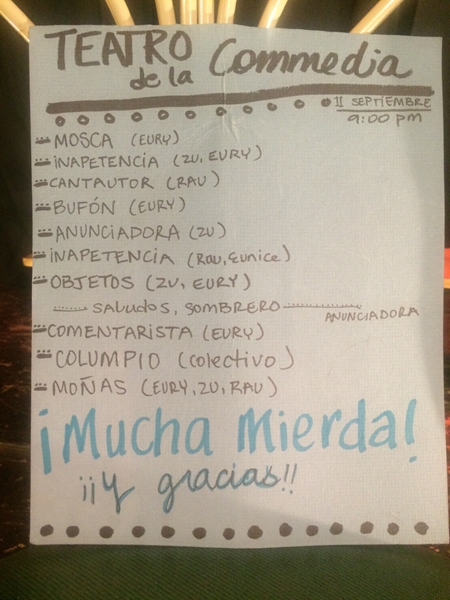 TEATRO
de la Commedia
11 SEPTIEMBRE
9:00 pm
MOSCA (EURY)
INAPETENCIA (ZU, EURY)
CANTAUTOR (RAU)
BUFÓN (EURY)
ANUNCIADORA (ZU)
INAPETENCIA (Rau, Eunice)
OBJETOS (ZU, EURY)
saludos, SOMBRERO
ANUNCIADORA
COMENTARISTA (EURY)
COLUMPIO (colectivo)
MOÑAS (EURY, ZU, RAU)
¡Mucha Mierda!
¡¡y gracias!!